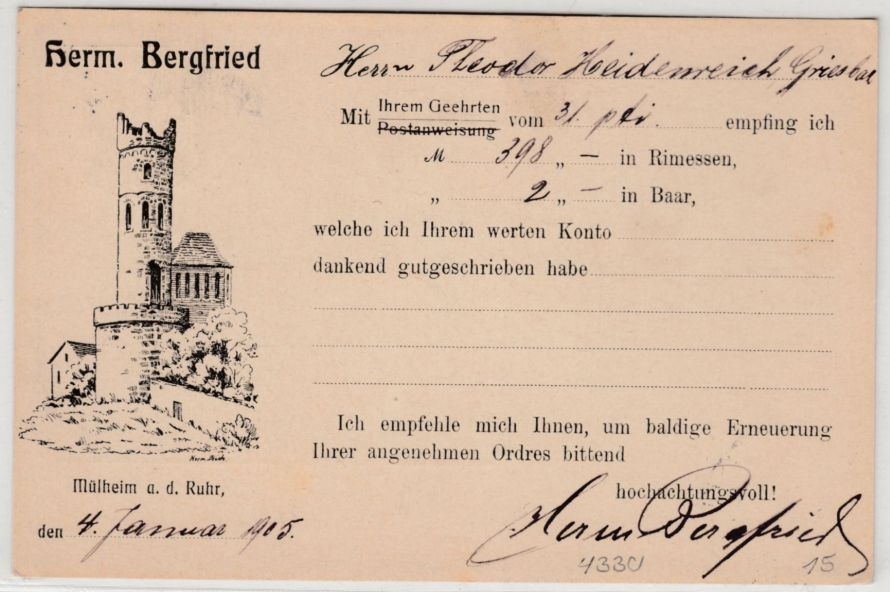 Herm. Bergfried
Herrn Theodor Heidenreich,
Mit Ihrem Geehrten
Postanweisung vom 31. pti. empfing ich
M 398 „ — in Rimessen,
„ 2 „ — in Baar,
welche ich Ihrem werten Konto
dankend gutgeschrieben habe
Ich empfehle mich Ihnen, um baldige Erneuerung
Ihrer angenehmen Ordres bittend
hochachtungsvoll!
Herm Bergfried
Mülheim a. d. Ruhr,
den 4. Januar 1905.
4330
15